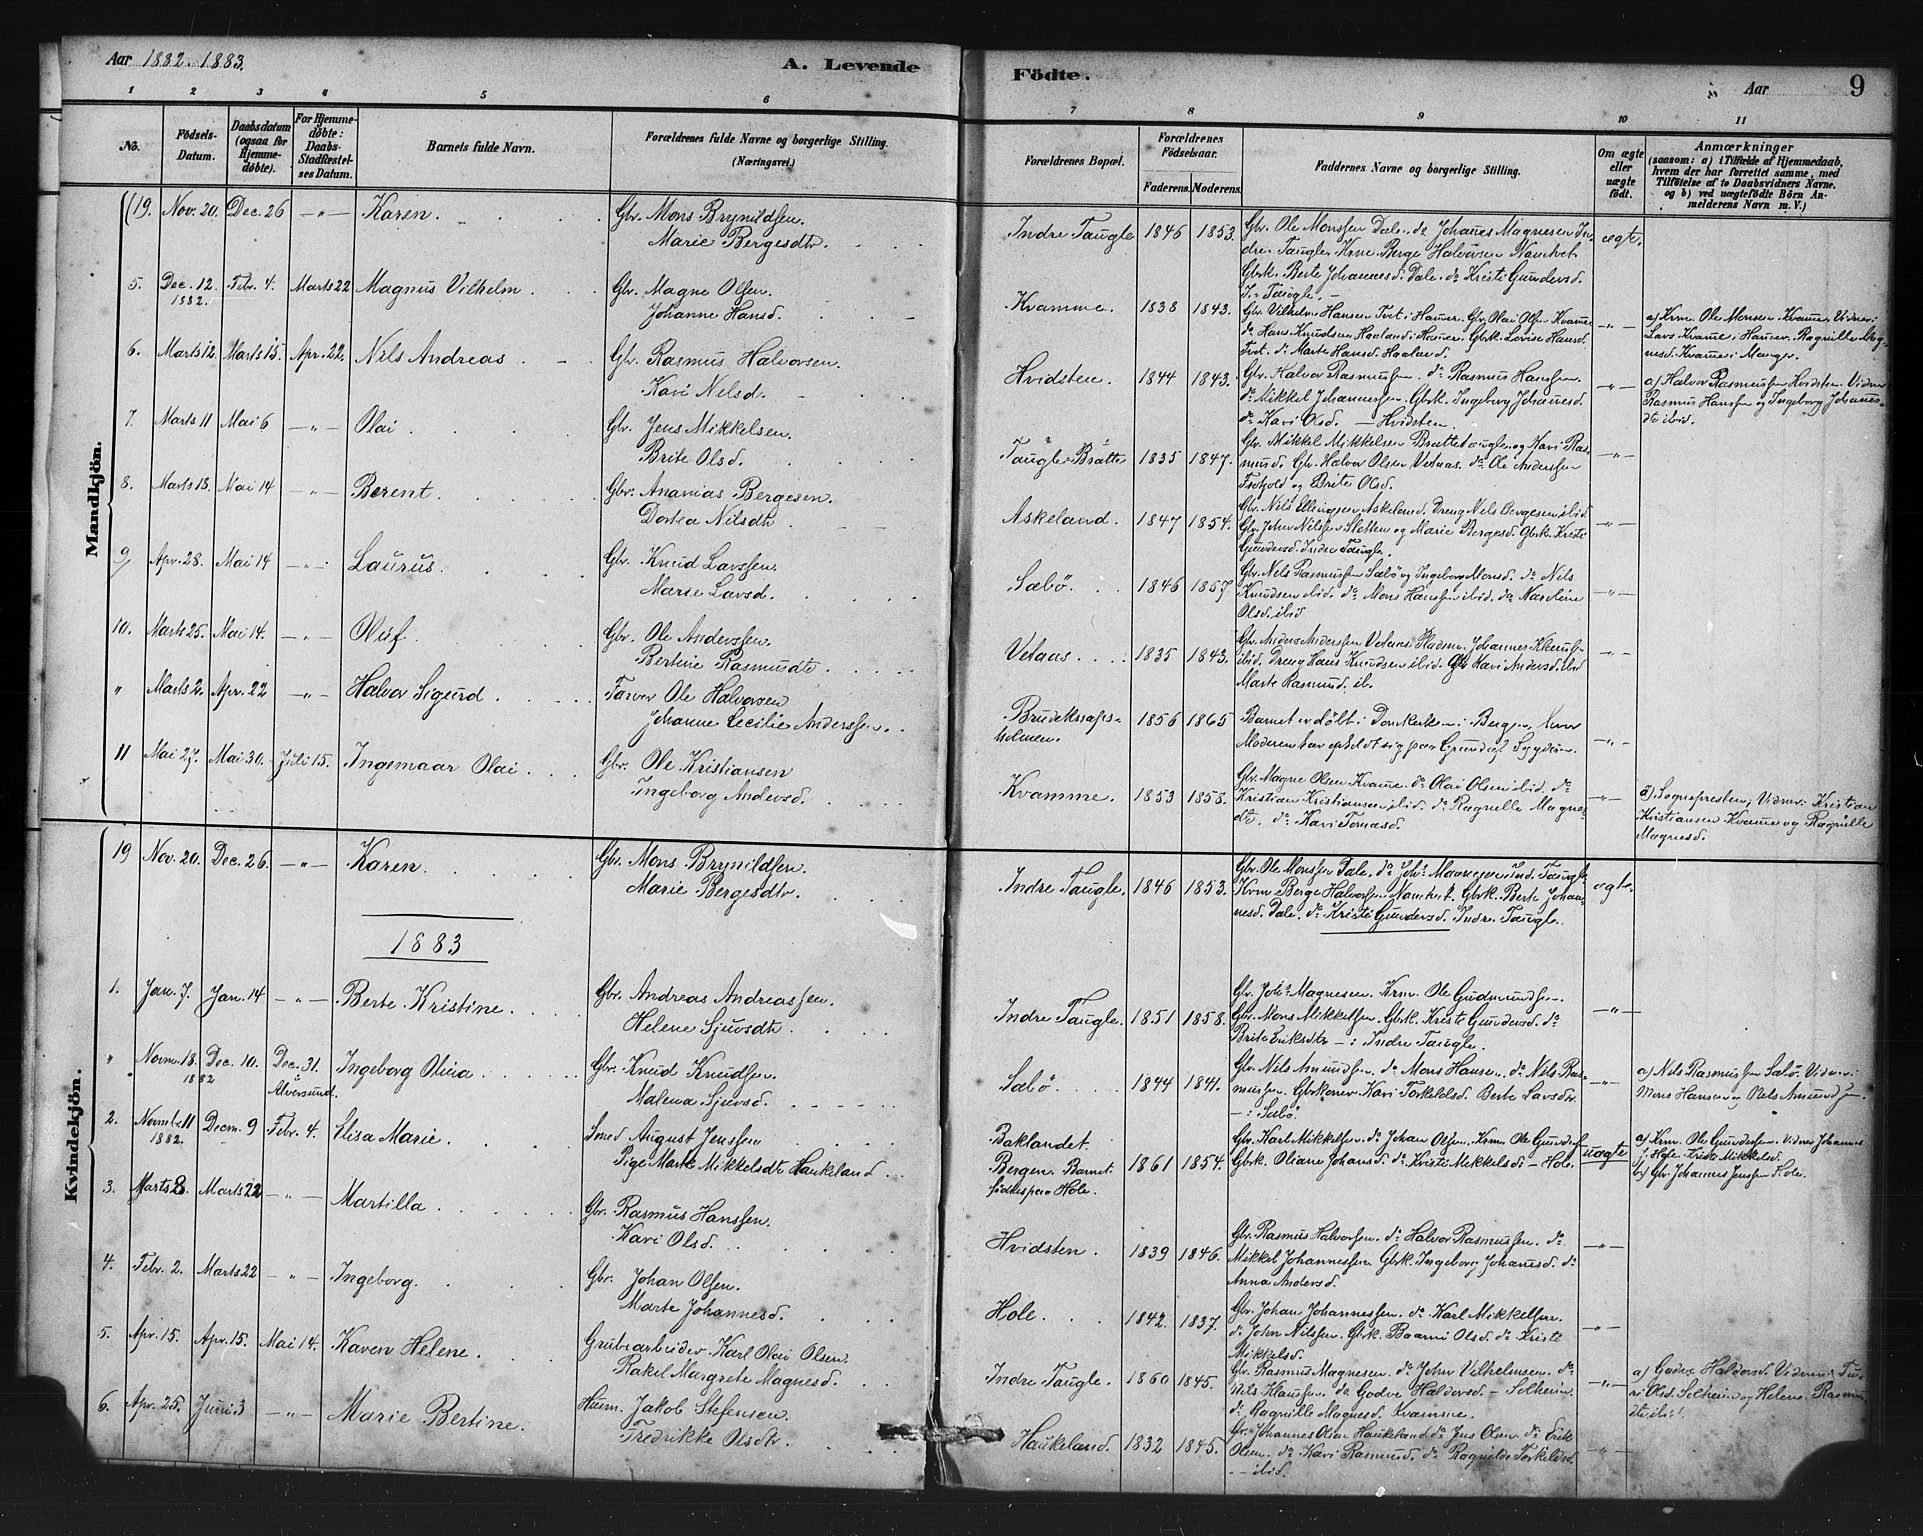 Aar 1882-1883.
A. Levende
Födte.
Aar
9
1 2 3 4 5 6
7 8 9 10 11
No.
Födsels-
Datum.
Daabsdatum
(ogsaa for
Hjemme-
døbte).
For Hjemme-
døbte:
Daabs-
Stadfæstel-
ses Datum.
Barnets fulde Navn.
Forældrenes fulde Navne og borgerlige Stilling.
(Næringsvei.)
Forældrenes Bopæl.
Forældrenes
Födselsaar.
Faderens. Moderens.
Faddernes Navne og borgerlige Stilling.
Om ægte
eller
uægte
født.
Anmærkninger
(saasom: a) i Tilfælde af Hjemmedaab,
hvem der har forrettet samme, med
Tilföielse af to Daabsvidners Navne.
og b) ved uægtefödte Börn An-
melderens Navn m. V.)
Mandkjön.
(19. Nov. 20. Dec. 26 —"— Karen. Gbr. Mons Brynildsen
Marie Bergesdtr.
Indre Taugle 1846 1853. Gbr. Ole Monssen Dale. do Johanes Magnesen In-
dre Taugle. Krm. Berge Halvorsen Namtvet
Gbrk. Berte Johannesd. Dale. do Kristi Gundersd.
I. Taugle. ægte.
5. Dec. 12. 1882. Febr. 4. Marts 22 Magnus Vilhelm Gbr. Magne Olsen.
Johanne Hansd.
Kvamme. 1838 1843. Gbr. Vilhelm Hansen Tvet i Hamer. Gbr. Olai Olsen Kvamme
do Hans Knudsen Haaland i Hamer. Gbrk. Lovise Hansd.
Tvet. do Marte Hansd. Haaland. —"—
a) Krm. Ole Monsen Kvame. Vidner:
Lars Kvame i Hamer. Ragnille Mag-
nesd. Kvame i Manger.
6. Marts 12. Marts 15. Apr. 22. Nils Andreas Gbr. Rasmus Halvorsen.
Kari Nilsd.
Hvidsten. 1844 1843. Gbr. Halvor Rasmussen. do Rasmus Hanssen.
do Mikkel Johannessen. Gbrk. Ingeborg Johanesd.
do Kari Olsd. — Hvidsten. —"—
a) Halvor Rasmussen Hvidsten. Vidner
Rasmus Hanssen og Ingeborg Johanes-
dt. ibid.
7. Marts 11 Mai 6 —"— Olai. Gbr. Jens Mikkelsen.
Brite Olsd.
Taugle Brätte 1835 1847. Gbr. Mikkel Mikkelsen Brattetaugle og Kari Ras-
musd. Gbr. Halvor Olsen Vetaas. do Ole Anderssen
og Brite Olsd. —"—
8. Marts 13. Mai 14 —"— Berent. Gbr. Ananias Bergesen.
Dortea Nilsdtr
Askeland. 1847 1854. Gbr. Nils Ellingsen Askeland. Dreng Nils Bergesen ibid.
Gbr. John Nilssen Sletten og Marie Bergesd. Gbrk. Kristi
Gundersd. Indre Taugle. —"—
9 Apr. 28. Mai 14 —"— Laurus. Gbr. Knud Larssen.
Marie Larsd.
Sæbö. 1846 1857. Gbr. Nils Rasmussen Sæbö og Ingeborg Monsd. do Nils
Knudsen ibid. do Mons Hanssen ibid. do Naroline
Olsd. ibid —"—
10. Marts 25. Mai 14. —"— Oluf. Gbr. Ole Anderssen.
Bertine Rasmusdt.
Vetaas. 1835 1843. Gbr. Anders Anderssen Vetaas. Johannes
ibid. Dreng Hans Knudsen ibid. Gbr Kari Andersd. ibid
Marte Rasmusd. ib. —"—
" Marts 2. Apr. 22 —"— Halvor Sigurd Farver Ole Halvorsen
Johanne Cecilie Anderssen.
Brudeknaps-
holmen. 1856 1865 Barnet er döbt i Domkirken i Bergen, hvor
Moderen har opholdt sig paa Grund af Sygdom. —"—
11 Mai 27. Mai 30. Juli 15. Ingemaar Olai Gbr. Ole Kristiansen
Ingeborg Andersd.
Kvamme. 1853 1858. Gbr. Magne Olsen Kvame. do Olai Olsen ibid. do
Kristian Kristiansen ibid. do Ragnille Magnes-
dt. do Kari Tomasd. —"—
a) Sognepresten; Vidner: Kristian
Kristiansen Kvame og Ragnille
Magnesd.
Kvindekjön.
19 Nov. 20. Dec. 26. —"— Karen. Gbr. Mons Brynildsen
Marie Bergesdtr.
Indre Taugle. 1846 1853. Gbr. Ole Monssen Dale. do Johs Magnesen Ind. Taugle.
Krm. Berge Halvorsen Namtvet. Gbrk. Berte Johan-
nesd. Dale. do Kristi Gundersd. Indre Taugle. ægte.
1883
1. Jan. 7. Jan. 14 —"— Berte Kristine. Gbr. Andreas Andreassen.
Helene Sjursdt.
Indre Taugle. 1851 1858. Gbr. Johs Magnesen. Krm. Ole Gudmundsen.
Gbr. Mons Mikkelsen. Gbrk. Kristi Gundersd. do
Brite Eriksdtr —: Indre Taugle. —"—
" Novm. 18. 1882 Dec. 10. Dec. 31. Alversund. Ingeborg Olina Gbr. Knud Knudsen.
Malena Sjursd.
Sæbö. 1844 1841. Gbr. Nils Amundsen. do Mons Hansen. do Nils Ras-
mussen. Gbrkoner Kari Torkelsd. Berte Larsdtr.
—: Sæbö —"—
a) Nils Rasmussen Sæbö. Vidner:
Mons Hansen og Nils Amundsen.
2. Novmb. 11 1882. Decm. 9 Febr. 4. Elisa Marie. Smed August Jenssen
Pige Marte Mikkelsdt. Haukeland.
Baklandet
Bergen. Barnet
födt paa Hole. 1861 1854. Gbr. Karl Mikkelsen. do Johan Olsen. Krm. Ole Gunders.
Gbrk. Oliane Johansd. do Kristi Mikkelsd. — Hole. uægte
a) Krm. Ole Gundersen. Vidner Johannes
J. Hole. Erik Mikkelsd.
b) Gbr. Johannes Jenssen Hole.
3. Marts 8. Marts 22 —"— Martilla Gbr. Rasmus Hanssen.
Kari Olsd.
Hvidsten. 1839 1846. Gbr. Rasmus Halvorsen. do Halvor Rasmussen. do
Mikkel Johannessen. Gbrk. Ingeborg Johanesd. do
Anna Andersd. —"—
4. Febr. 2. Marts 22 —"— Ingeborg. Gbr. Johan Olsen.
Marte Johannesd.
Hole. 1842. 1837. Gbr. Johan Johannessen. do Karl Mikkelsen.
do John Nilssen. Gbk. Baarni Olsd. do Kristi
Mikkelsd. —"—
5. Apr. 15. Apr. 15. Mai 14. Karen Helene. Grubearbeider Karl Olai Olsen.
Rakel Margrete Magnesd.
Indre Taugle. 1860 1845. Gbr. Rasmus Magnesen. do John Vilhelmsen. do
Nils Klausen. do Godve Haldorsd. — Solheim.
do Ragnille Magnesd. Kvamme. —"—
a) Godve Haldorsd. Vidner:
Olsd. Solheim og Helene Rasmus-
dt. ibid.
6. Apr. 25. Juni 3 —"— Marie Bertine. Husm. Jakob Stefensen.
Fredrikke Olsdtr.
Haukeland. 1832 1845. Gbr. Johannes Olsen Haukeland. do Jens Olsen. do Erik
Olsen. do Kari Rasmusd. do Ragnilde Torkildsd.
— ibid. —"—